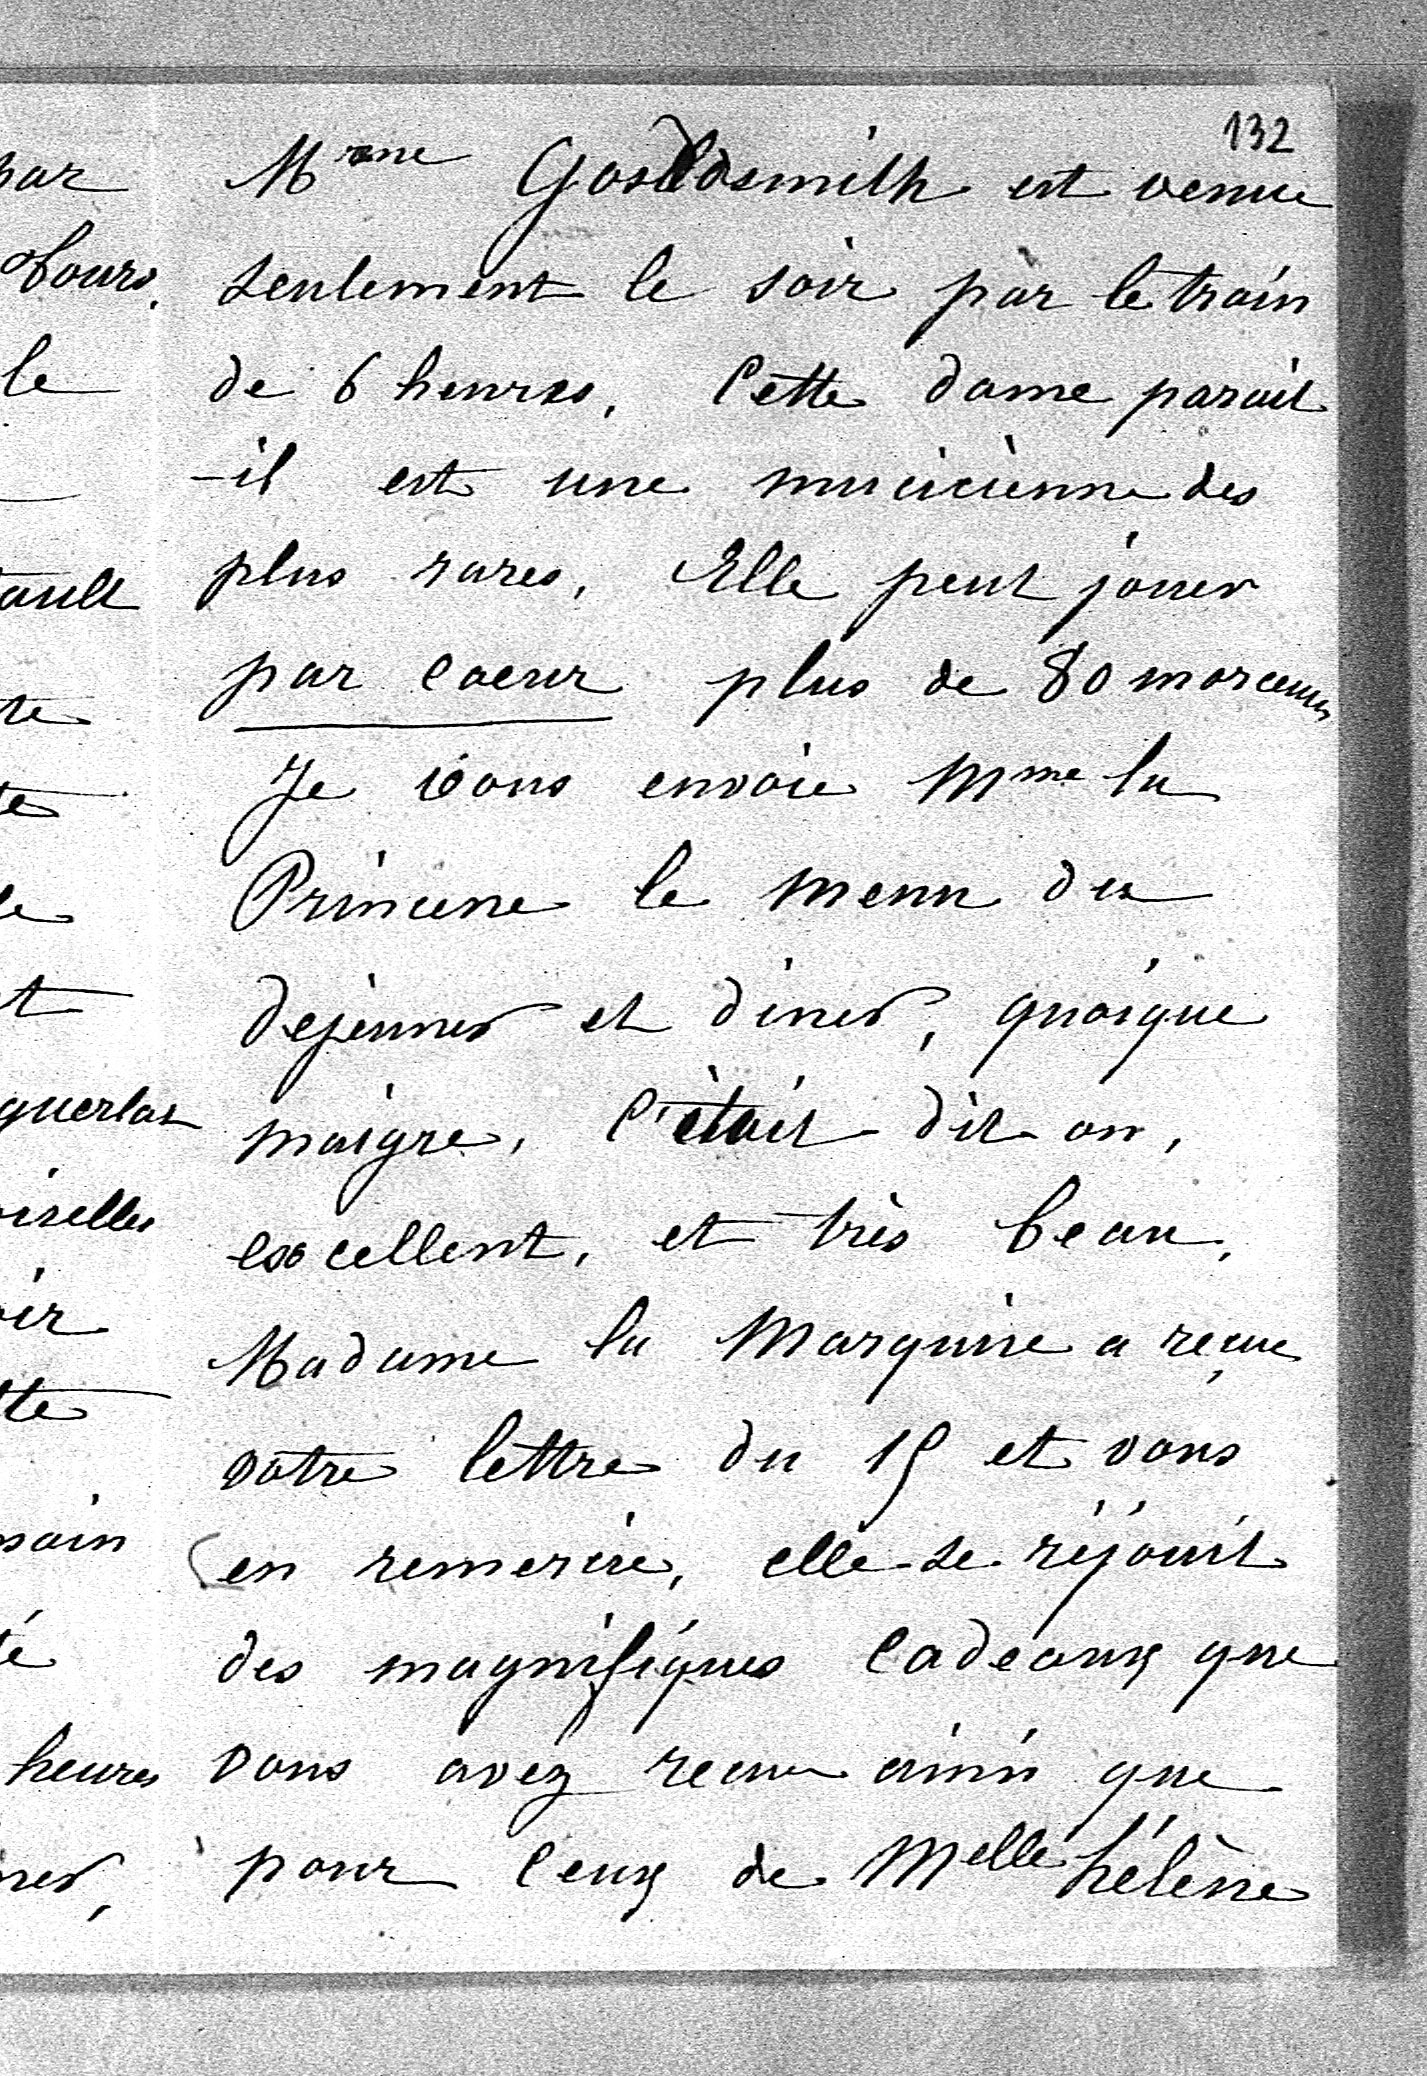 132
par
Tours.
le
ault
te
te
le
et
querlat
oiselles
oir
tte
main
té
heures
ner,
Mme Goldsmith est venue
seulement le soir par le train
de 6 heures. Cette dame parait
-il est une musicienne des
plus rares. Elle peut jouer
par coeur plus de 80 morceaux
Je vous envoie Mme la
Princesse le menu du
dejeuner et diner, quoique
maigre, c'était dit on,
excellent, et très beau,
Madame la Marquise a reçue
votre lettre du 15 et vous
en remercie, elle se réjouit
des magnifiques cadeaux que
vous avez recue ainsi que
pour ceux de Melle hélène